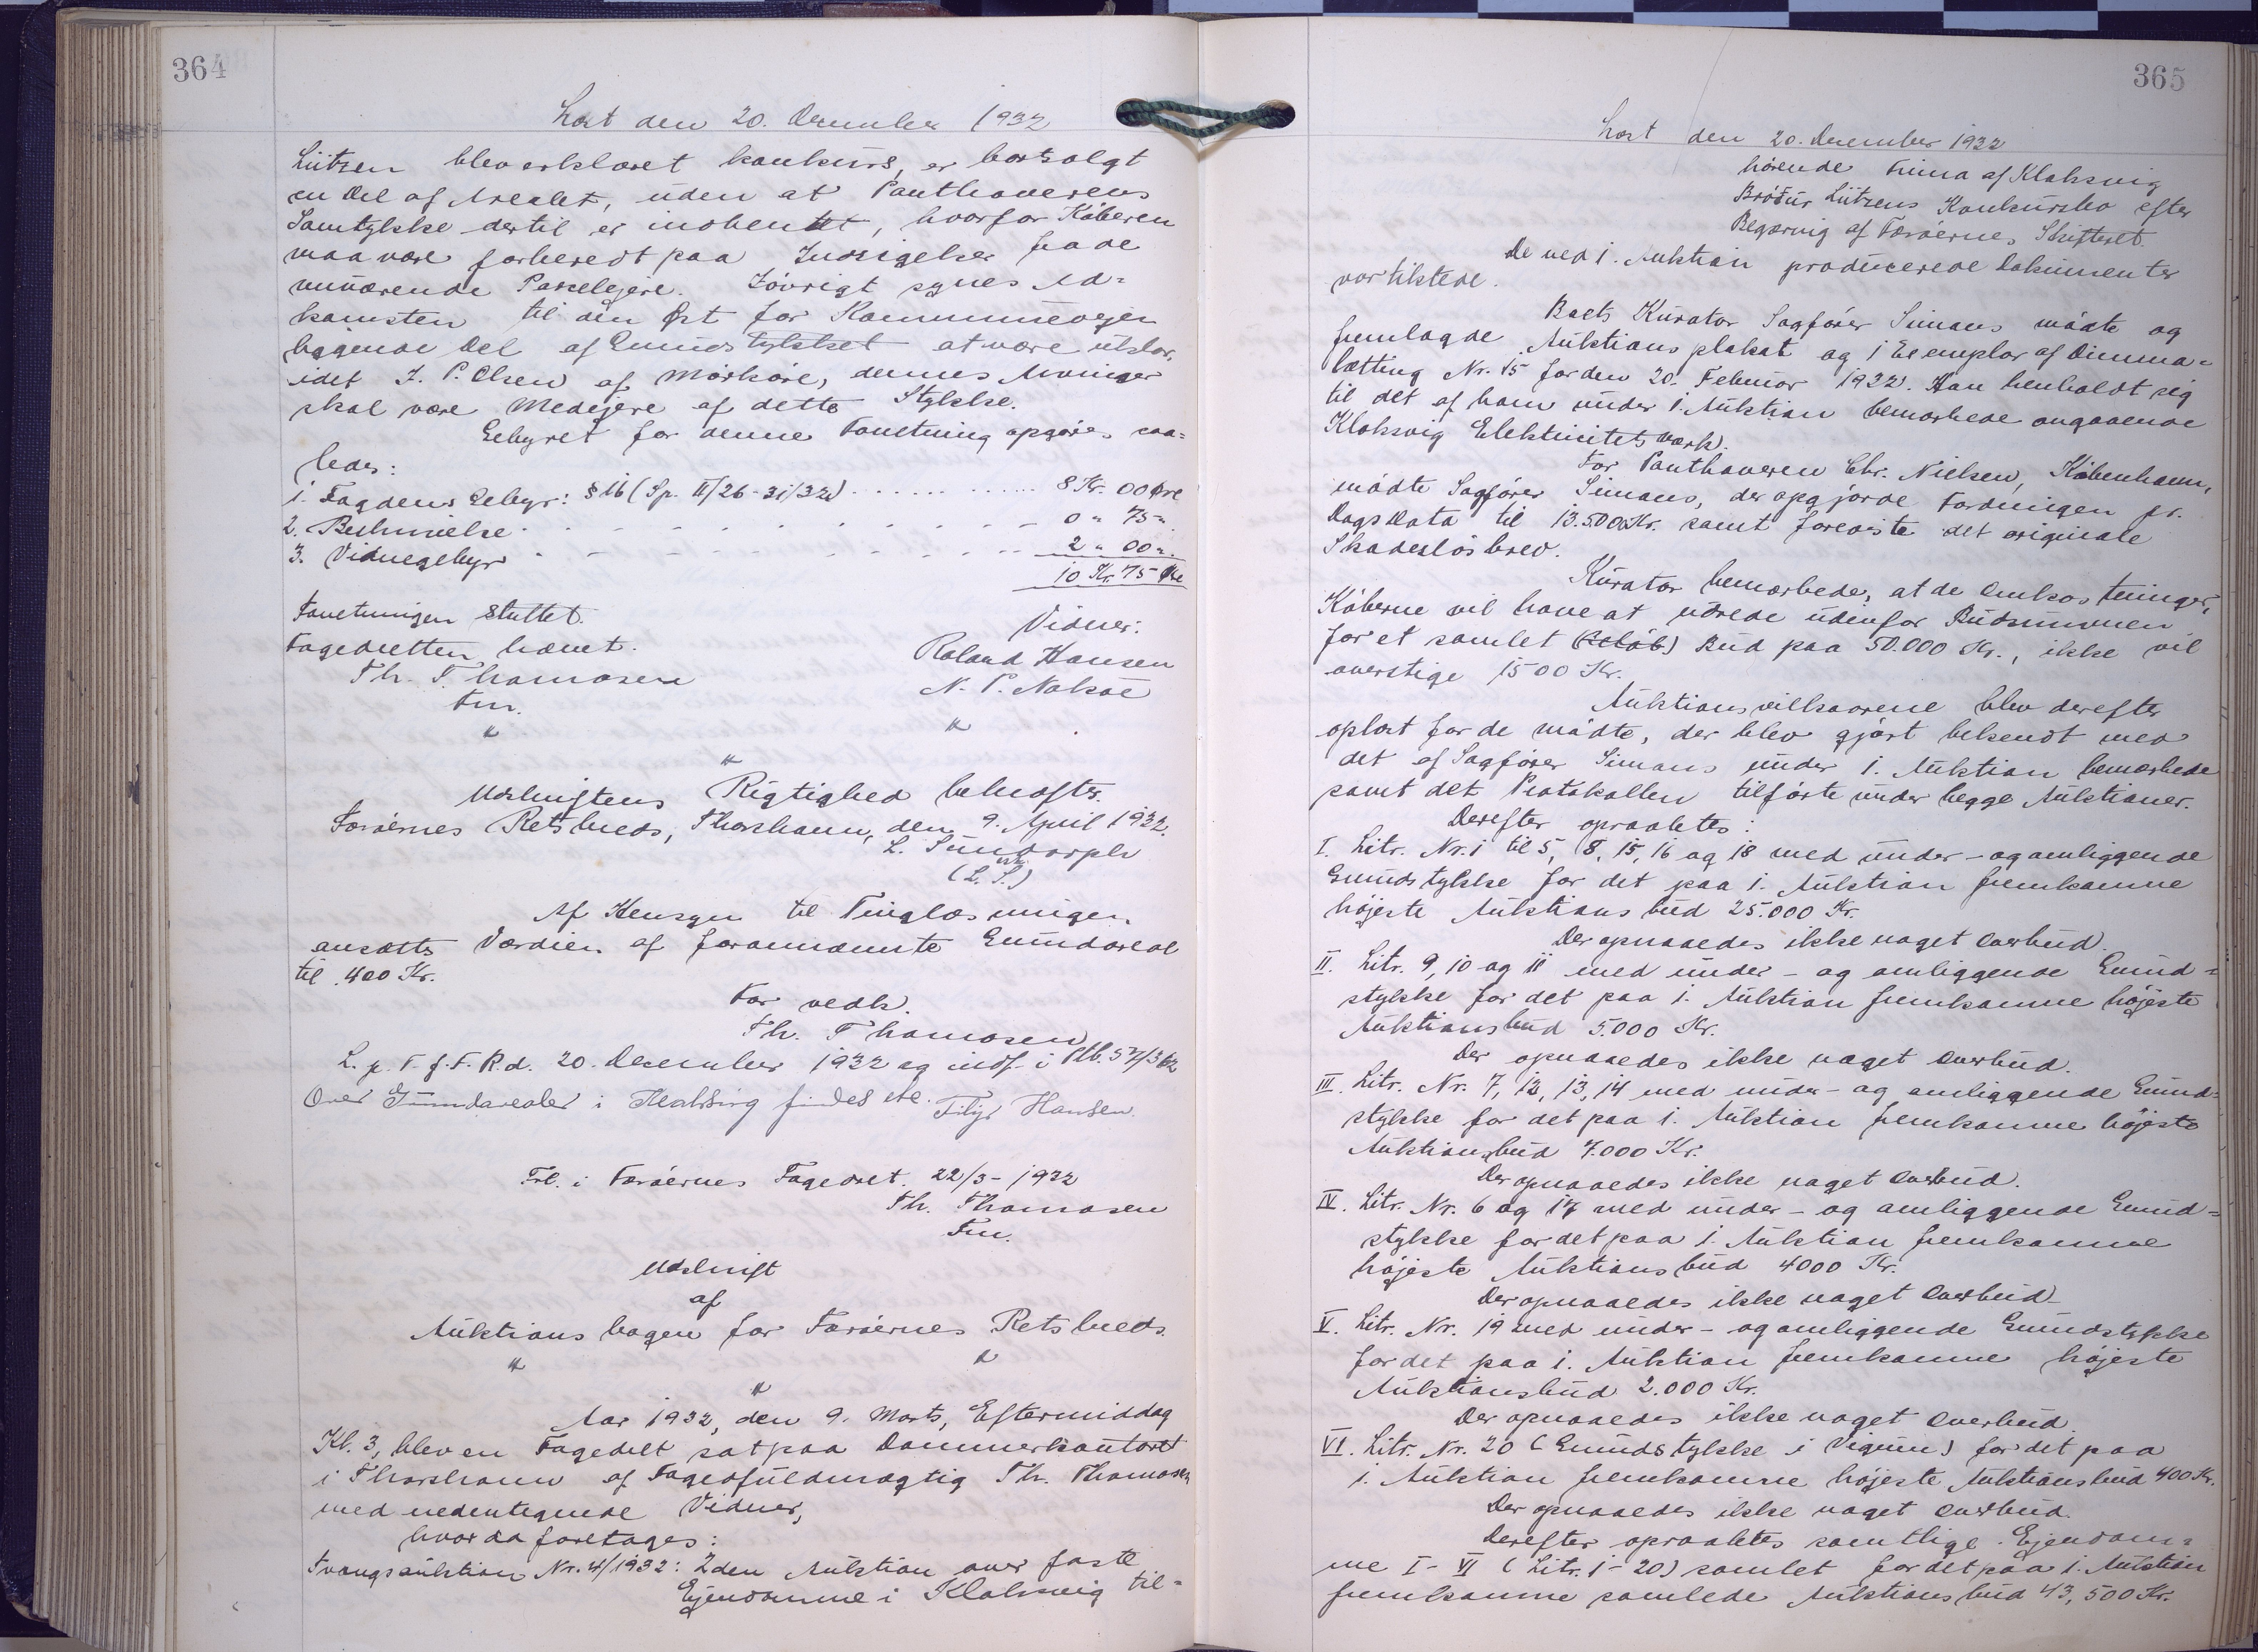 364
Læst den 20. December 1932
Lützen blev erklæret konkurs, er bortsolgt
en Del af Arealet, uden at Panthaverens
Samtykke dertil er indhentet, hvorfor Køberen
maa være forberedt paa Indsigelser fra de
nuværende Parcelejere. Iøvrigt synes Ad=
komsten til den Øst for Kommunevejen
liggende Del af Grundstykket at være uklar,
idet J. P. Olsen af Mørkøre, dennes Arvinger
skal være Medejere af dette Stykke.
Gebyret for denne Forretning opgøres saa=
ledes:
1. Fogdens Gebyr: § 16 (Sp. II/26-31/32) . . . . . . 8 Kr. 00 Øre
2. Beskrivelse - - - - - - - 0 " 75 "
3. Vidnegebyr - - - - - - - 2 " 00 ".
10 Kr. 75 Øre
Forretningen sluttet.
Vidner:
Fogedretten hævet.
Roland Hansen
Th. Thomasen
N. P. Nolsøe
Fm.
"
"
"
Udskriftens Rigtighed bekræftes.
Færøernes Retskreds, Thorshavn, den 9. April 1932.
L. Sundorph
cst.
(L. S.)
Af Hensyn til Tinglæsningen
ansættes Værdien af forannævnte Grundareal
til 400 Kr.
For vedk.
Th. Thomasen
L. p. F. f. F. R. d. 20. December 1932 og indf. i Ptb. 57/362
Over Grundarealer i Klaksvig findes ele. Filip Hansen.
Frl. i Færøernes Fogedret. 22/3 - 1932
Th. Thomasen
Fm.
Udskrift
af
Auktionsbogen for Færøernes Retskreds.
"
"
"
Aar 1932, den 9. Marts, Eftermiddag
Kl. 3, blev en Fogedret sat paa Dommerkontoret
i Thorshavn af Fogedfuldmægtig Th. Thomasen
med nedentegnede Vidner,
hvor da foretages:
Tvangsauktion Nr. 4/1932: 2den Auktion over faste
Ejendomme i Klaksvig til=
365
Læst den 20. December 1932
hørende Firma af Klaksvig
Brødur Lützens Konkursbo efter
Begæring af Færøernes Skifteret.
De ved 1. Auktion producerede Dokumenter
var tilstede.
Boets Kurator Sagfører Simans mødte og
fremlagde Auktionsplakat og 1 Exemplar af Dimma=
lætting Nr. 15 for den 20. Februar 1932. Han henholdt sig
til det af ham under 1. Auktion bemærkede angaaende
Klaksvig Elektricitetsværk.
For Panthaveren Chr. Nielsen, København,
mødte Sagfører Simans, der opgjorde Fordringen pr.
Dags Dato til 13.500 Kr. samt foreviste det originale
Skadesløsbrev.
Kurator bemærkede, at de Omkostninger,
Køberne vil have at udrede udenfor Budsummen
for et samlet (Beløb) Bud paa 50.000 Kr., ikke vil
overstige 1500 Kr.
Auktionsvilkaarene blev derefter
oplæst for de mødte, der blev gjort bekendt med
det af Sagfører Simans under 1. Auktion bemærkede
samt det Protokollen tilførte under begge Auktioner.
Derefter opraabtes:
I. Litr. Nr. 1 til 5, 8, 15, 16 og 18 med under- og omliggende
Grundstykke for det paa 1. Auktion fremkomne
højeste Auktionsbud 25.000 Kr.
Der opnaaedes ikke noget Overbud.
II. Litr. 9, 10 og 11 med under- og omliggende Grund=
stykke for det paa 1. Auktion fremkomne højeste
Auktionsbud 5.000 Kr.
Der opnaaedes ikke noget Overbud.
III. Litr. Nr. 7, 12, 13, 14 med under- og omliggende Grund=
stykke for det paa 1. Auktion fremkomne højeste
Auktionsbud 7.000 Kr.
Der opnaaedes ikke noget Overbud.
IV. Litr. Nr. 6 og 17 med under- og omliggende Grund=
stykke for det paa 1. Auktion fremkomne
højeste Auktionsbud 4000 Kr.
Der opnaaedes ikke noget Overbud
V. Litr. Nr. 19 med under- og omliggende Grundstykke
for det paa 1. Auktion fremkomne højeste
Auktionsbud 2.000 Kr.
Der opnaaedes ikke noget Overbud.
VI. Litr. Nr. 20 (Grundstykke i Vigum) for det paa
1. Auktion fremkomne højeste Auktionsbud 400 Kr.
Der opnaaedes ikke noget Overbud.
Derefter opraabtes samtlige Ejendom=
me I - VI (Litr. 1 - 20) samlet for det paa 1. Auktion
fremkomne samlede Auktionsbud 43,500 Kr.